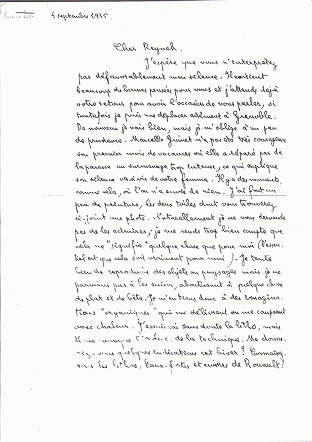 4 septembre 1935.
Cher Reynal.
J'espère que vous n'interprétez
pas défavorablement mon silence. Il contient
beaucoup de bonnes pensées pour vous et j'attends déjà
votre retour pour avoir l'occasion de vous parler, si
toutefois je puis me déplacer aisément à Grenoble.
De nouveau je vais bien, mais je m'oblige à un peu
de prudence. Marcelle n'a pas été très courageuse
son premier mois de vacances où elle a réparé par de
la paresse un surmenage trop intense, ce qui explique
son silence vis à vis de votre femme. Il y a des moments
comme cela, où l'on n'a envie de rien. J'ai fait un
peu de peinture, les deux toiles dont vous trouverez
ci-joint une photo. Naturellement je ne vous demande
pas de les admirer, je me rends trop bien compte que
cela ne "signifie" quelque chose que pour moi (l'essen-
tiel est que cela soit vraiment pour moi). Je tente
bien de reproduire des objets ou paysages mais je ne
parviens pas à les saisir, aboutissant à quelque chose
de plat et de bête. Je m'en tiens donc à des imagina-
tions "organiques" qui me délivrent ou me
avec chaleur. J'essaierai sans doute la litho, mais
de la technique. Me donne-
rez-vous quelques indications cet hiver? Connaissez-
vous les lithos, eaux-fortes et cuivres de Rouault?